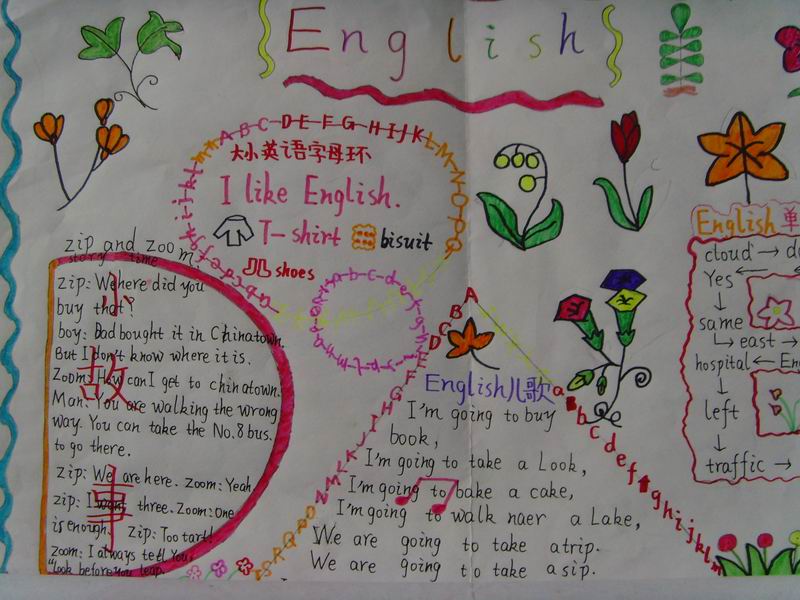 English
A B C D E F G H I J K L M N O P Q
大小英语字母环
I like English.
T-shirt bisuit
shoes
zip and zoom
story time
小故事
zip: Where did you
buy that?
boy: Dad bought it in Chinatown.
But I don't know where it is.
Zoom: How can I get to chinatown.
Man: You are walking the wrong
way. You can take the No.8 bus.
to go there.
zip: We are here. zoom: Yeah
zip: I want three. Zoom: One
is enough. zip: Too tart!
zoom: I always tell You
"look before you leap.
English儿歌
I'm going to buy
book,
I'm going to take a Look,
I'm going to bake a cake,
I'm going to walk naer a Lake,
We are going to take atrip.
We are going to take asip.
A B C D E F G H I J K L M N O P Q R S
a b c d e f g h i j k l m
English 单
cloud → d
Yes ←
↓
same
↳ east →
hospital ← En
↓
left
↓
traffic →